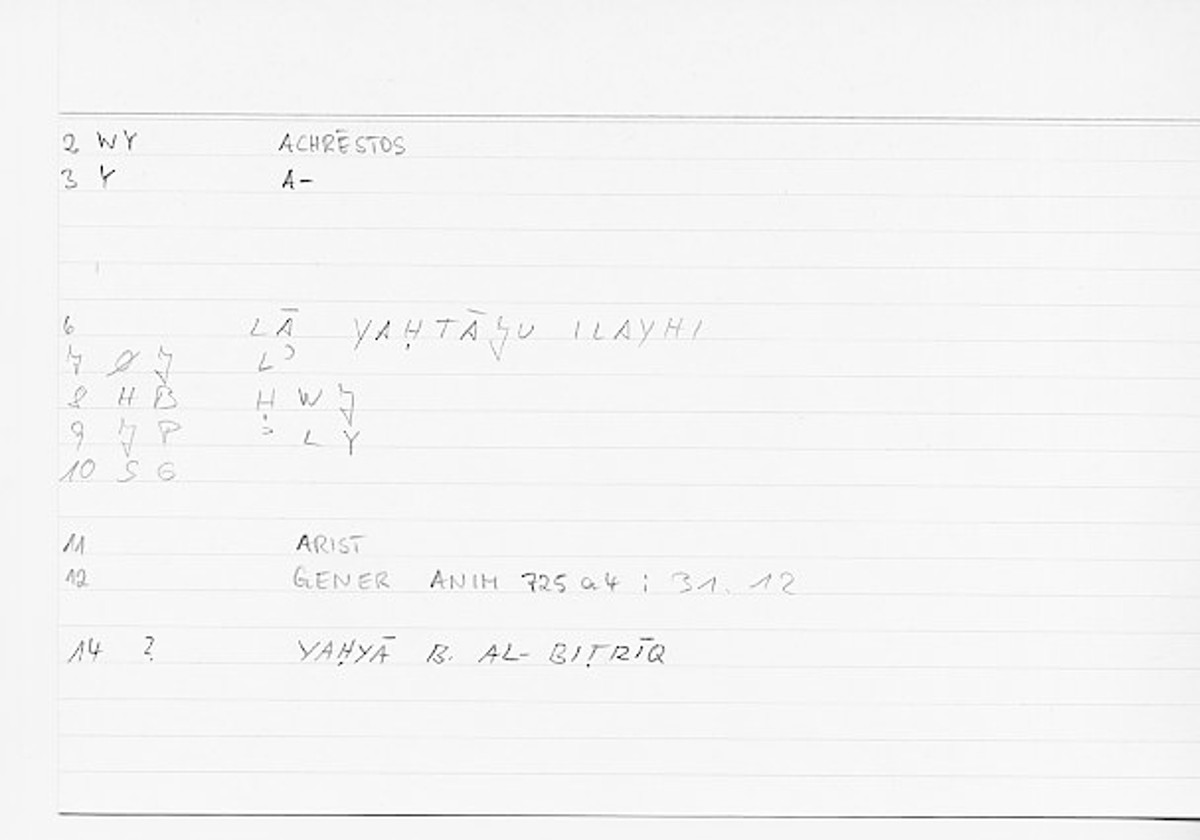 2 WY ACHRĒSTOS
3 Y A-
6 LĀ YAḤTĀǦU ILAYHI
7 Ø Ǧ Lʾ
8 H B Ḥ W Ǧ
9 Ǧ P ʾ L Y
10 S G
11 ARIST
12 GENER ANIM 725 a 4 ; 31. 12
14 ? YAḤYĀ B. AL-BIṬRĪQ